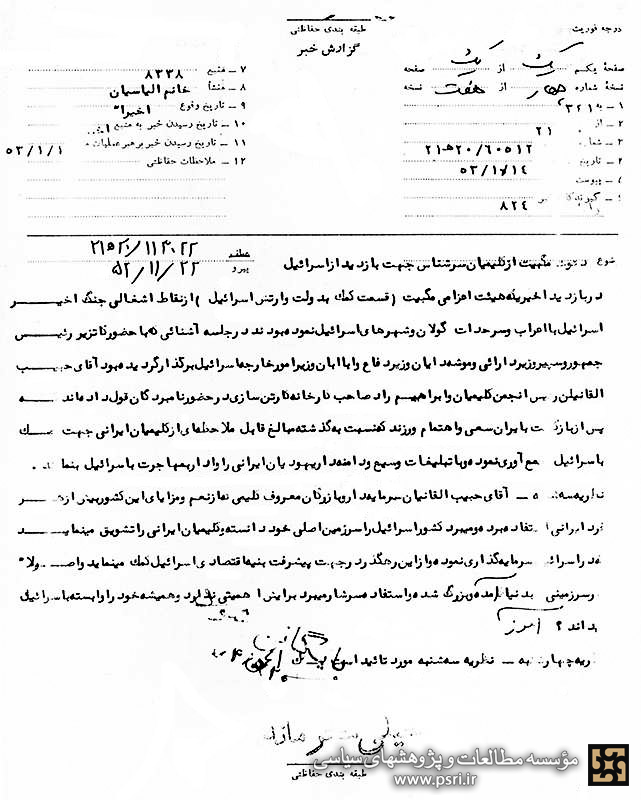 درجه فوریت
طبقه بندی حفاظتی
گزارش خبر
صفحهٔ یکم از یک صفحه
نسخهٔ شماره چهار از هفت نسخه
۱ ـ به ۳۲۱
۲ ـ از ۲۱
۳ ـ شماره ۲۱ه‍۲۰/۶۰۵۱۲
۴ ـ تاریخ
۵۳/۱/۱۴
پیوست
گیرندگان
۸۲۴
۷ ـ منبع ۸۳۳۸
۸ ـ منشأ خانم الیاسیان
۹ ـ تاریخ وقوع اخیرا"
۱۰ ـ تاریخ رسیدن خبر به منبع
۱۱ ـ تاریخ رسیدن خبر برهبر عملیات ۵۳/۱/۱
۱۲ ـ ملاحظات حفاظتی
عطف
پیرو ۵۲/۱۱/۲۲
موضوع دعوت مگبیت از کلیمیان سرشناس جهت بازدید از اسرائیل
در بازدید اخیریکه هیئت اعزامی مگبیت (قسمت کمک بدولت وارتش اسرائیل) از نقاط اشغالی جنگ اخیر
اسرائیل با اعراب و سرحدات گولان و شهرهای اسرائیل نموده بودند در جلسه آشنائی که با حضور کاتزیر رئیس
جمهور و سپیر وزیر دارائی و موشه دایان وزیر دفاع و ابا ابان وزیر امور خارجه اسرائیل برگذار گردیده بود آقای حبیب
القانیان رئیس انجمن کلیمیان و ابراهیم راد صاحب کارخانه کارتن سازی در حضور نامبردگان قول داده اند که
پس از بازگشت بایران سعی و اهتمام ورزند که نسبت به گذشته مبالغ قابل ملاحظه ای از کلیمیان ایرانی جهت کمک
باسرائیل جمع آوری نموده و با تبلیغات وسیع و دامنه دار یهودیان ایرانی را وادار بمهاجرت باسرائیل بنمایند.
نظریه سه شنبه ـ آقای حبیب القانیان سرمایه دار و بازرگان معروف کلیمی که از نعم و مزایای این کشور بیش از هر
فرد ایرانی استفاده برده و میبرد کشور اسرائیل را سرزمین اصلی خود دانسته و کلیمیان ایرانی را تشویق مینماید
که در اسرائیل سرمایه گذاری نموده و از این رهگذر در جهت پیشرفت بنیه اقتصادی اسرائیل کمک مینماید و اصولا"
سرزمینی بدنیا آمده و بزرگ شده و استفاده سرشار میبرد برایش اهمیتی ندارد و همیشه خود را وابسته باسرائیل
بداند؟
نظریه چهارشنبه ـ نظریه سه شنبه مورد تائید است
طبقه بندی حفاظتی
مؤسسه مطالعات و پژوهشهای سیاسی
www.psri.ir